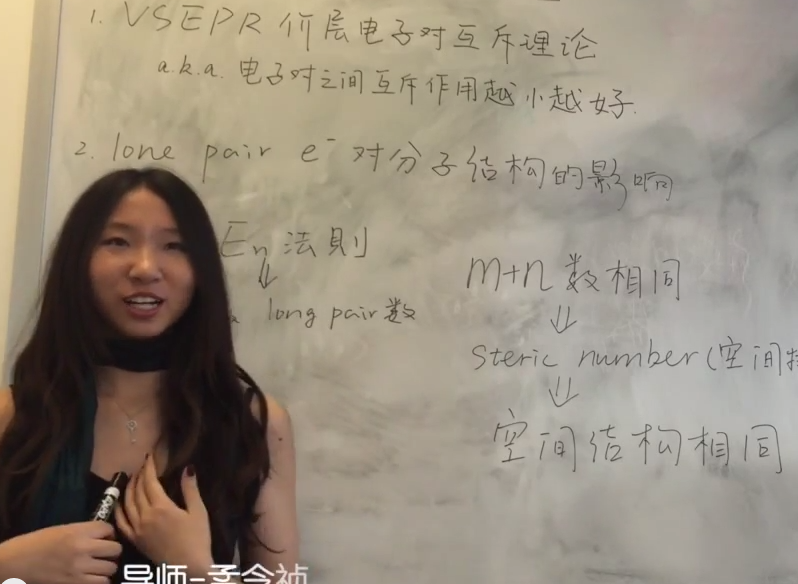 1. VSEPR 价层电子对互斥理论
a.k.a. 电子对之间互斥作用越小越好.
2. lone pair e⁻ 对分子结构的影响
En 法則
long pair 数
m+n 数相同
⇓
⇓
steric number (空间
⇓
空间结构相同
导师-孟令祯